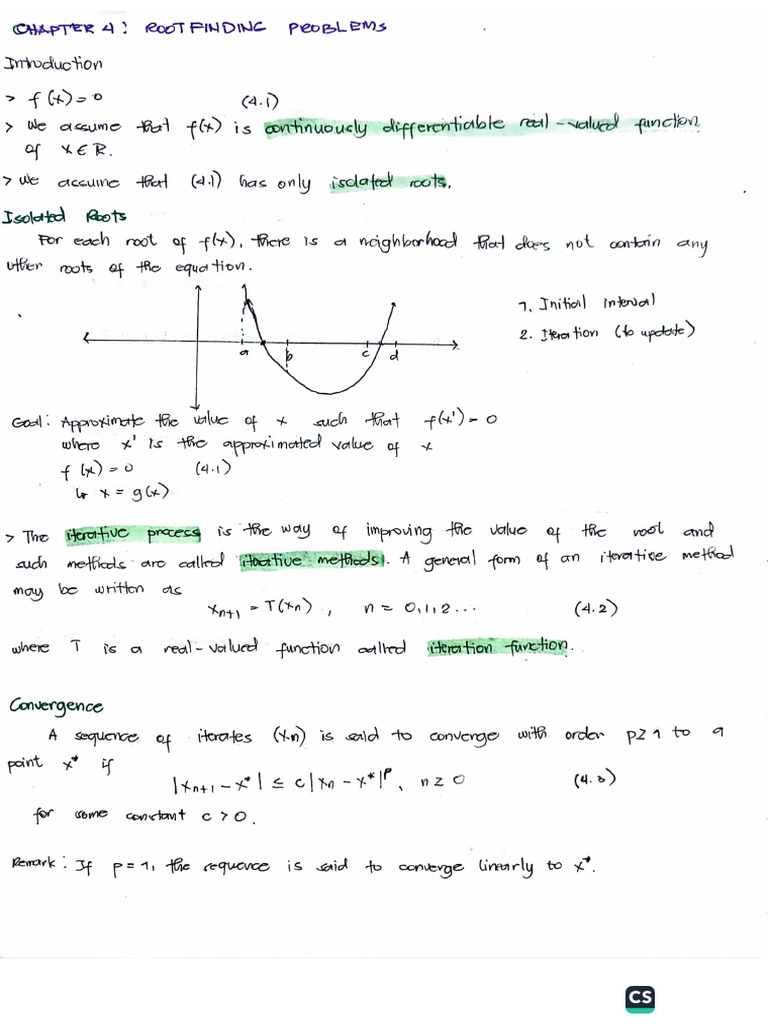 CHAPTER 4: ROOTFINDING PROBLEMS
Introduction
> f(x) = 0 (4.1)
> We assume that f(x) is continuously differentiable real-valued function
of x ∈ R.
> We assume that (4.1) has only isolated roots.
Isolated Roots
For each root of f(x), there is a neighborhood that does not contain any
other roots of the equation.
1. Initial interval
2. Iteration (to update)
a b c d
Goal: Approximate the value of x such that f(x') = 0
where x' is the approximated value of x
f(x) = 0 (4.1)
↳ x = g(x)
> The iterative process is the way of improving the value of the root and
such methods are called iterative methods. A general form of an iterative method
may be written as
xₙ₊₁ = T(xₙ), n = 0,1,2... (4.2)
where T is a real-valued function called iteration function.
Convergence
A sequence of iterates (xₙ) is said to converge with order p≥1 to a
point x* if
|xₙ₊₁ - x*| ≤ c|xₙ - x*|ᵖ, n ≥ 0 (4.3)
for some constant c > 0.
Remark: If p = 1, the sequence is said to converge linearly to x*.
CS